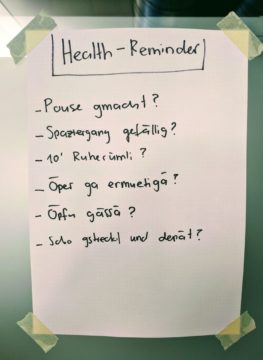 Health-Reminder
- Pause gmacht?
- Spaziergang gefällig?
- 10' Ruherümli?
- Öper ga ermuetigä?
- Öpfu gässä?
- Scho gstreckt und denät?